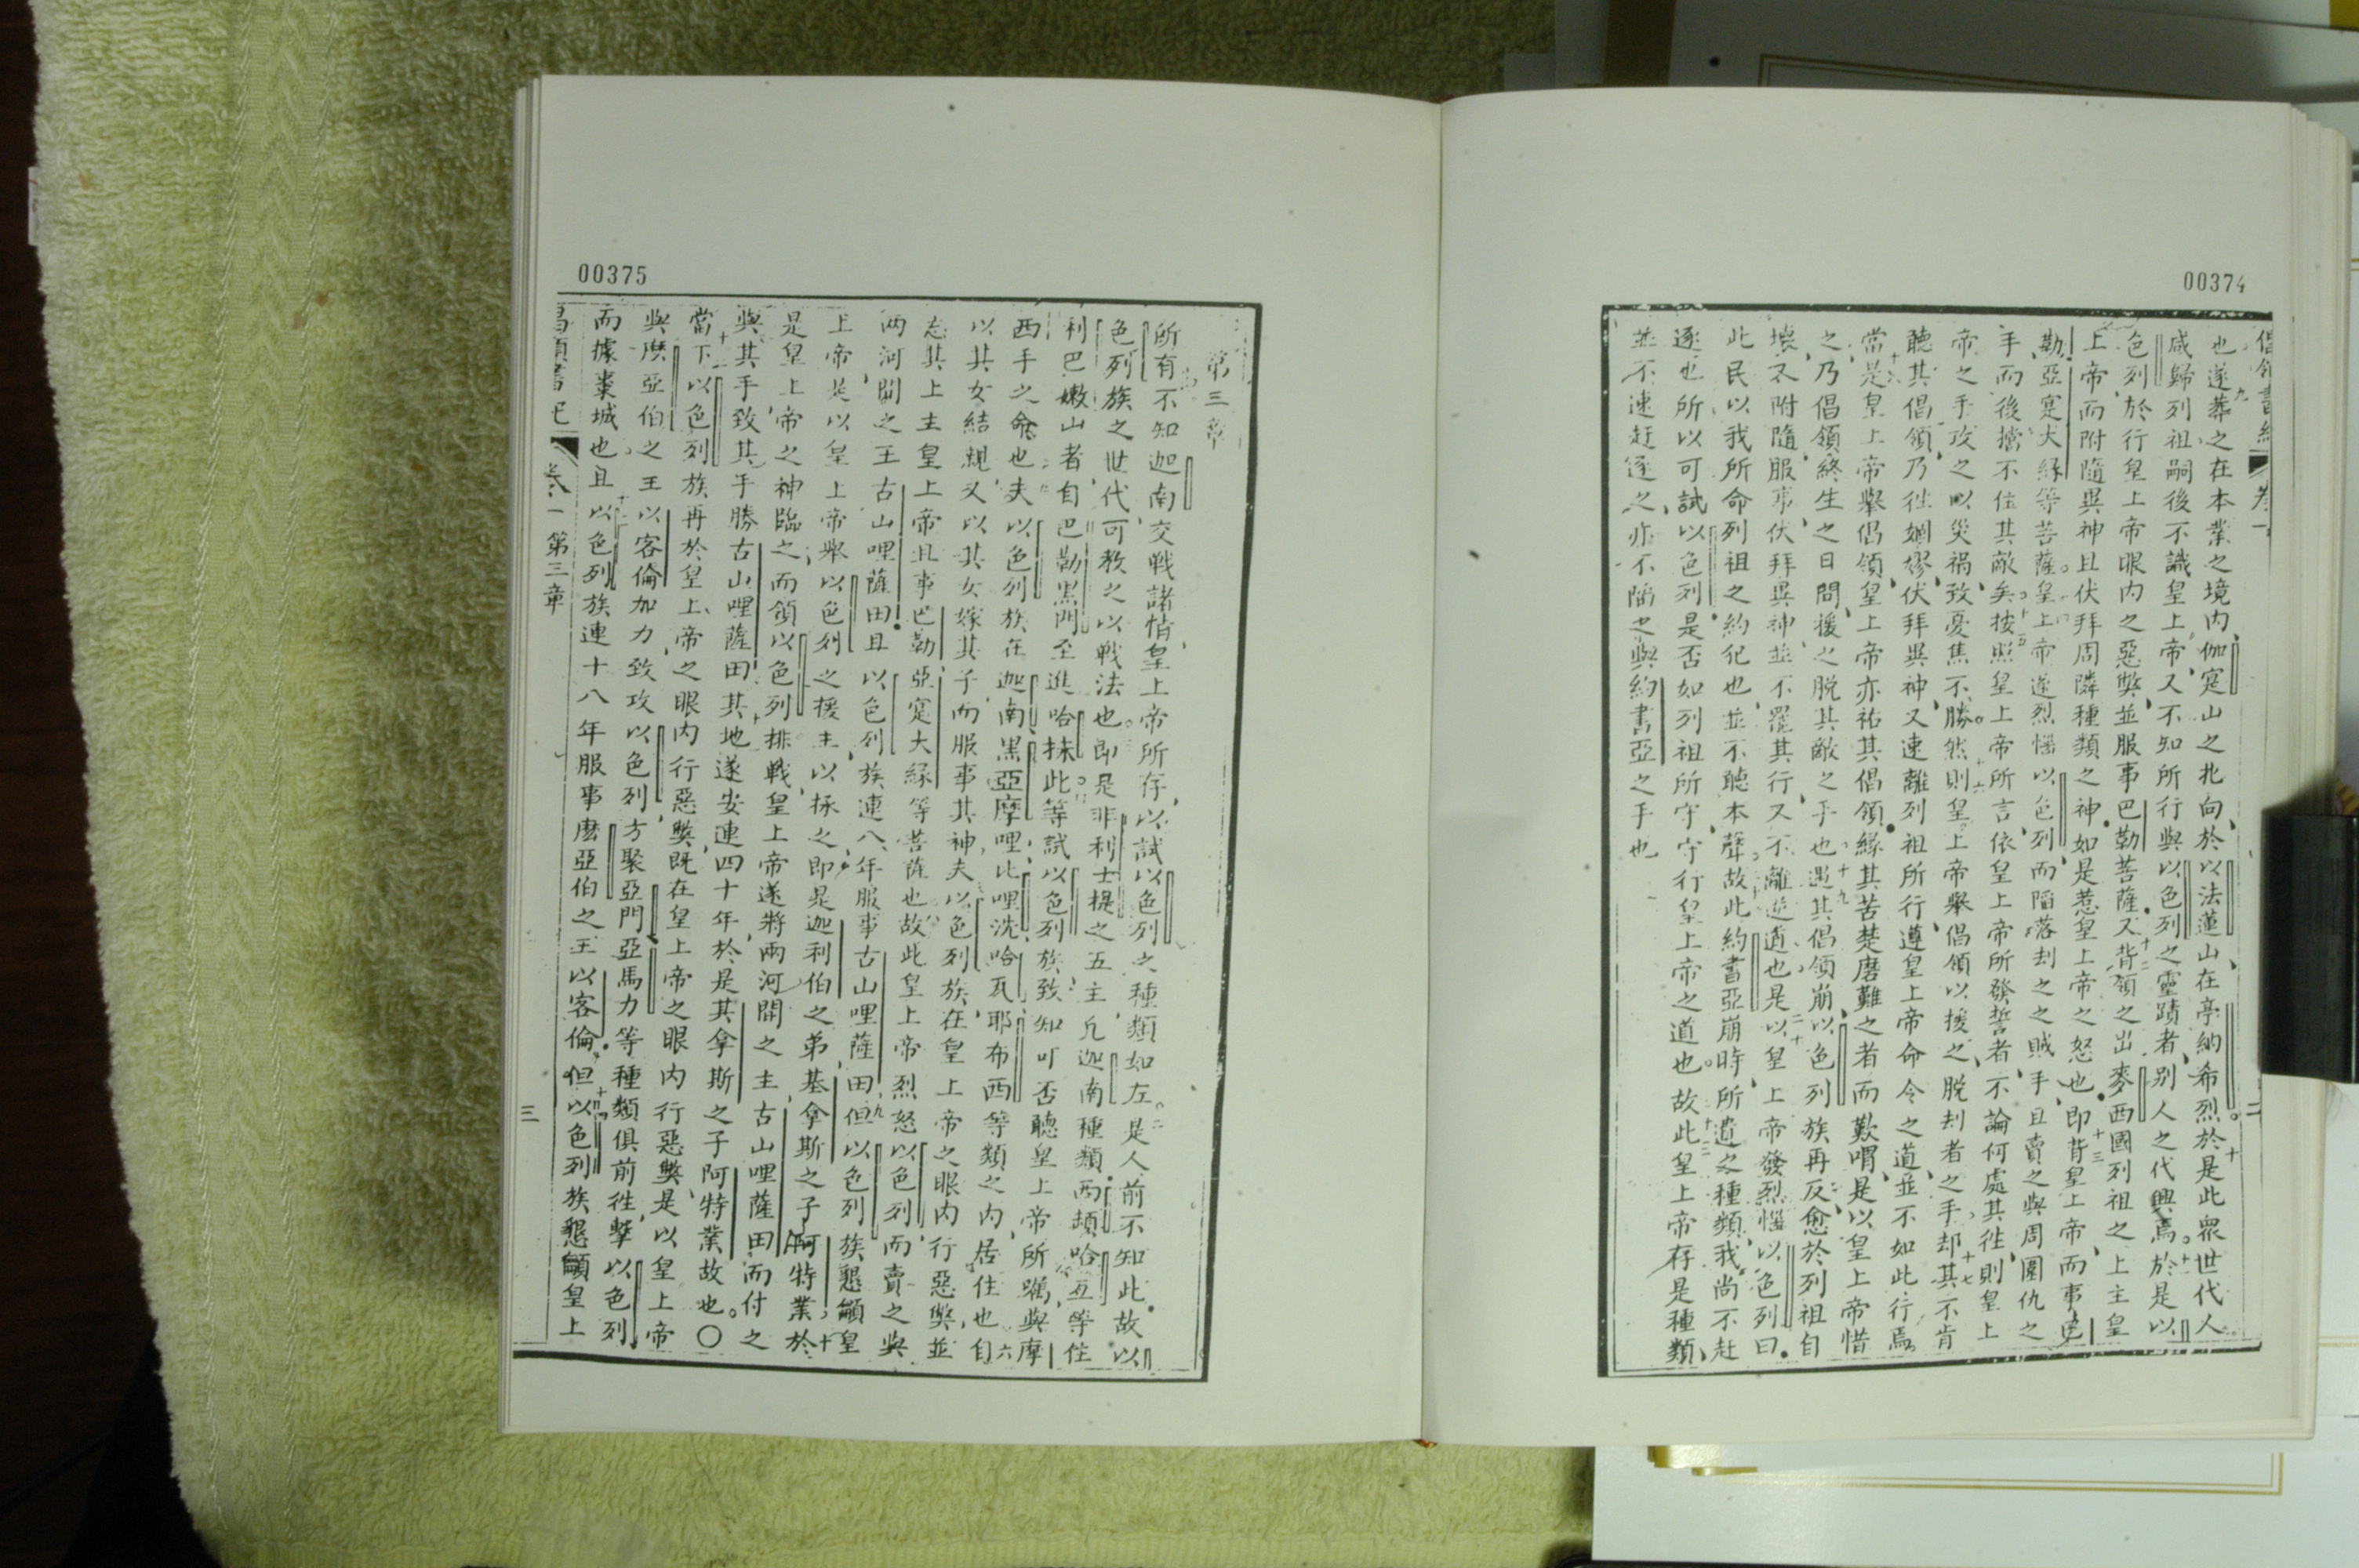 00374
倡領書紀
卷一
二
也遂葬之在本業之境内伽寔山之北向於以法蓮山在亭納希烈於是此眾世代人
咸歸列祖嗣後不識皇上帝又不知所行與以色列之靈蹟者别人之代興焉於是以
色列於行皇上帝眼内之惡獘並服事巴勒菩薩又背領之出麥西國列祖之上主皇
上帝而附隨異神且伏拜周隣種類之神如是惹皇上帝之怒也即背皇上帝而事巴
勒亞寔大緣等菩薩皇上帝遂烈惱以色列而陷落刦之之賊手且賣之與周圍仇之
手而後擋不住其敵矣按照皇上帝所言依皇上帝所發誓者不論何處其徃則皇上
帝之手攻之以災禍致憂焦不勝然則皇上帝舉倡領以援之脱刦者之手却其不肯
聽其倡領乃徃姻嫪伏拜異神又速離列祖所行遵皇上帝命令之道並不如此行焉
當是皇上帝舉倡領皇上帝亦祐其倡領緣其苦楚磨難之者而歎喟是以皇上帝惜
之乃倡領終生之日間援之脱其敵之手也遇其倡領崩以色列族再反愈於列祖自
壞太附隨服事伏拜異神並不罷其行又不離逆道也是以皇上帝發烈惱以色列曰
此民以我所命列祖之約犯也並不聽本聲故此約書亞崩時所遺之種類我尚不赶
逐也所以可試以色列是否如列祖所守守行皇上帝之道也故此皇上帝存是種類
並不速赶逐之亦不陷之與約書亞之手也
00375
第三章
所有不知迦南交戰諸情皇上帝所存以試以色列之種類如左是人前不知此故以
色列族之世代可教之以戰法也即是非利士提之五主凡迦南種類西頓哈瓦等住
利巴嫩山者自巴勒黑門至進哈抹此等試以色列族致知可否聽皇上帝所囑與摩
西手之命也夫以色列族在迦南黑亞摩哩比哩洗哈瓦耶布西等類之内居住也自
以其女結親又以其女嫁其子而服事其神夫以色列族在皇上帝之眼内行惡獘並
忘其上主皇上帝且事巴勒亞寔大緣等菩薩也故此皇上帝烈怒以色列而賣之與
两河間之王古山哩薩田且以色列族連八年服事古山哩薩田但以色列族懇籲皇
上帝是以皇上帝舉以色列之援主以拯之即是迦利伯之弟基拿斯之子阿特業於
是皇上帝之神臨之而領以色列排戰皇上帝遂將兩河間之主古山哩薩田而付之
與其手致其手勝古山哩薩田其地遂安連四十年於是其拿斯之子阿特業故也〇
當下以色列族再於皇上帝之眼内行惡獘既在皇上帝之眼内行惡獘是以皇上帝
與麽亞伯之王以客倫加力致攻以色列方聚亞門亞馬力等種類俱前徃擊以色列
而據棗城也且以色列族連十八年服事麽亞伯之王以客倫但以色列族懇籲皇上
倡領書紀
卷一第三章
三